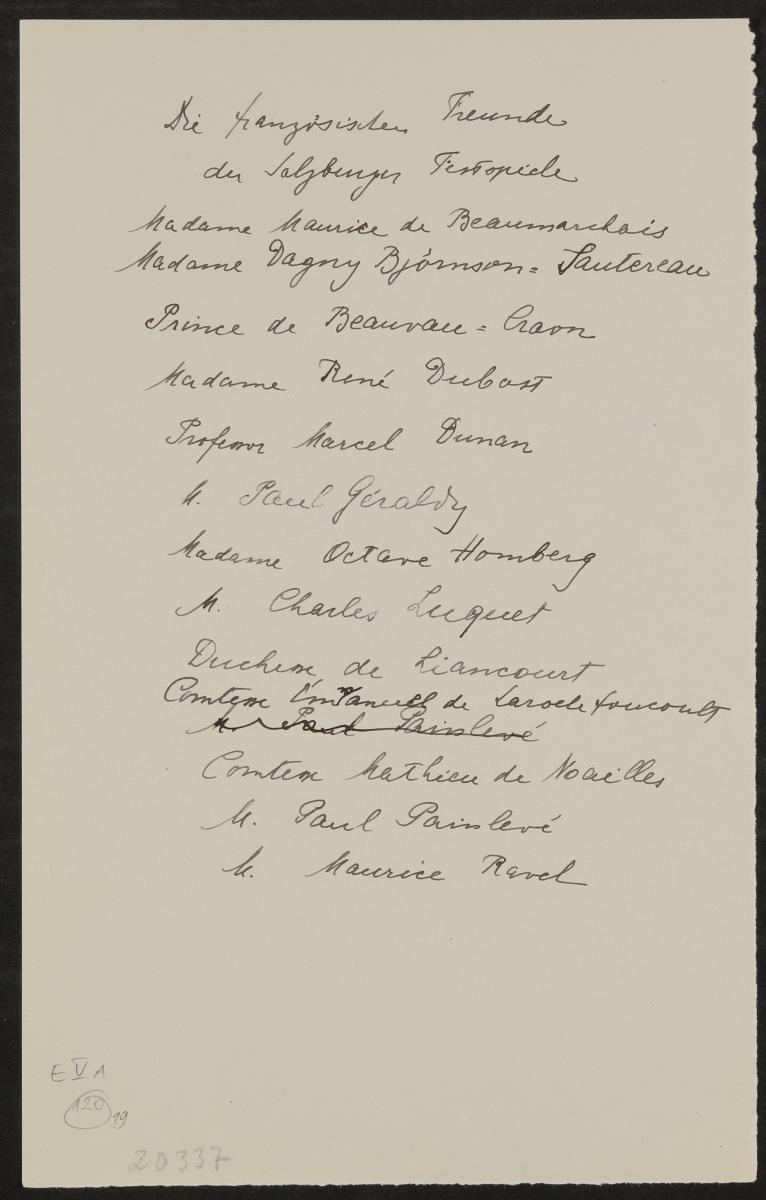 Die französischen Freunde
der Salzburger Festspiele
Madame Maurice de Beaumarchais
Madame Dagny Björnson = Sautereau
Prince de Beauvau = Craon
Madame René Dubost
Professor Marcel Dunan
M. Paul Géraldy
Madame Octave Homberg
M. Charles Luquet
Duchesse de Liancourt
Comtesse Emanuel de Larochefoucoult
M. Paul Painlevé
Comtesse Mathieu de Noailles
M. Paul Painlevé
M. Maurice Ravel
E V A
120 19
ZD337